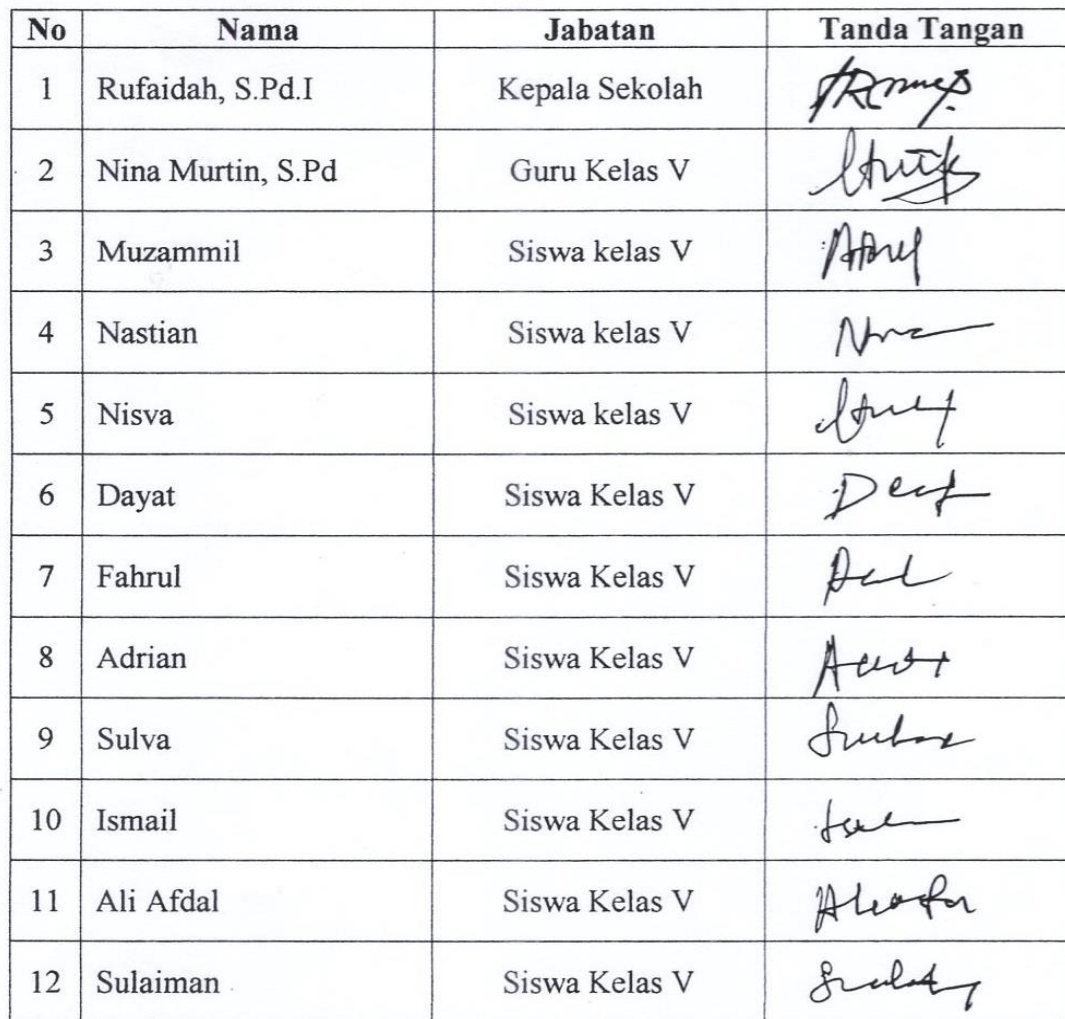 No Nama Jabatan Tanda Tangan
1 Rufaidah, S.Pd.I Kepala Sekolah
2 Nina Murtin, S.Pd Guru Kelas V
3 Muzammil Siswa kelas V
4 Nastian Siswa kelas V
5 Nisva Siswa kelas V
6 Dayat Siswa Kelas V
7 Fahrul Siswa Kelas V
8 Adrian Siswa Kelas V
9 Sulva Siswa Kelas V
10 Ismail Siswa Kelas V
11 Ali Afdal Siswa Kelas V
12 Sulaiman Siswa Kelas V